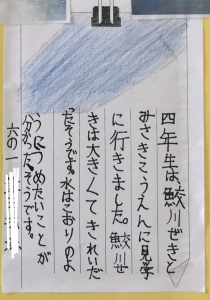 四年生は、鮫川ぜきと
みさきこうえんに見学
に行きました。鮫川ぜ
きは大きくてきれいだ
ったそうです。水はこおりのよ
うにつめたいことが
分かったそうです。
六の一